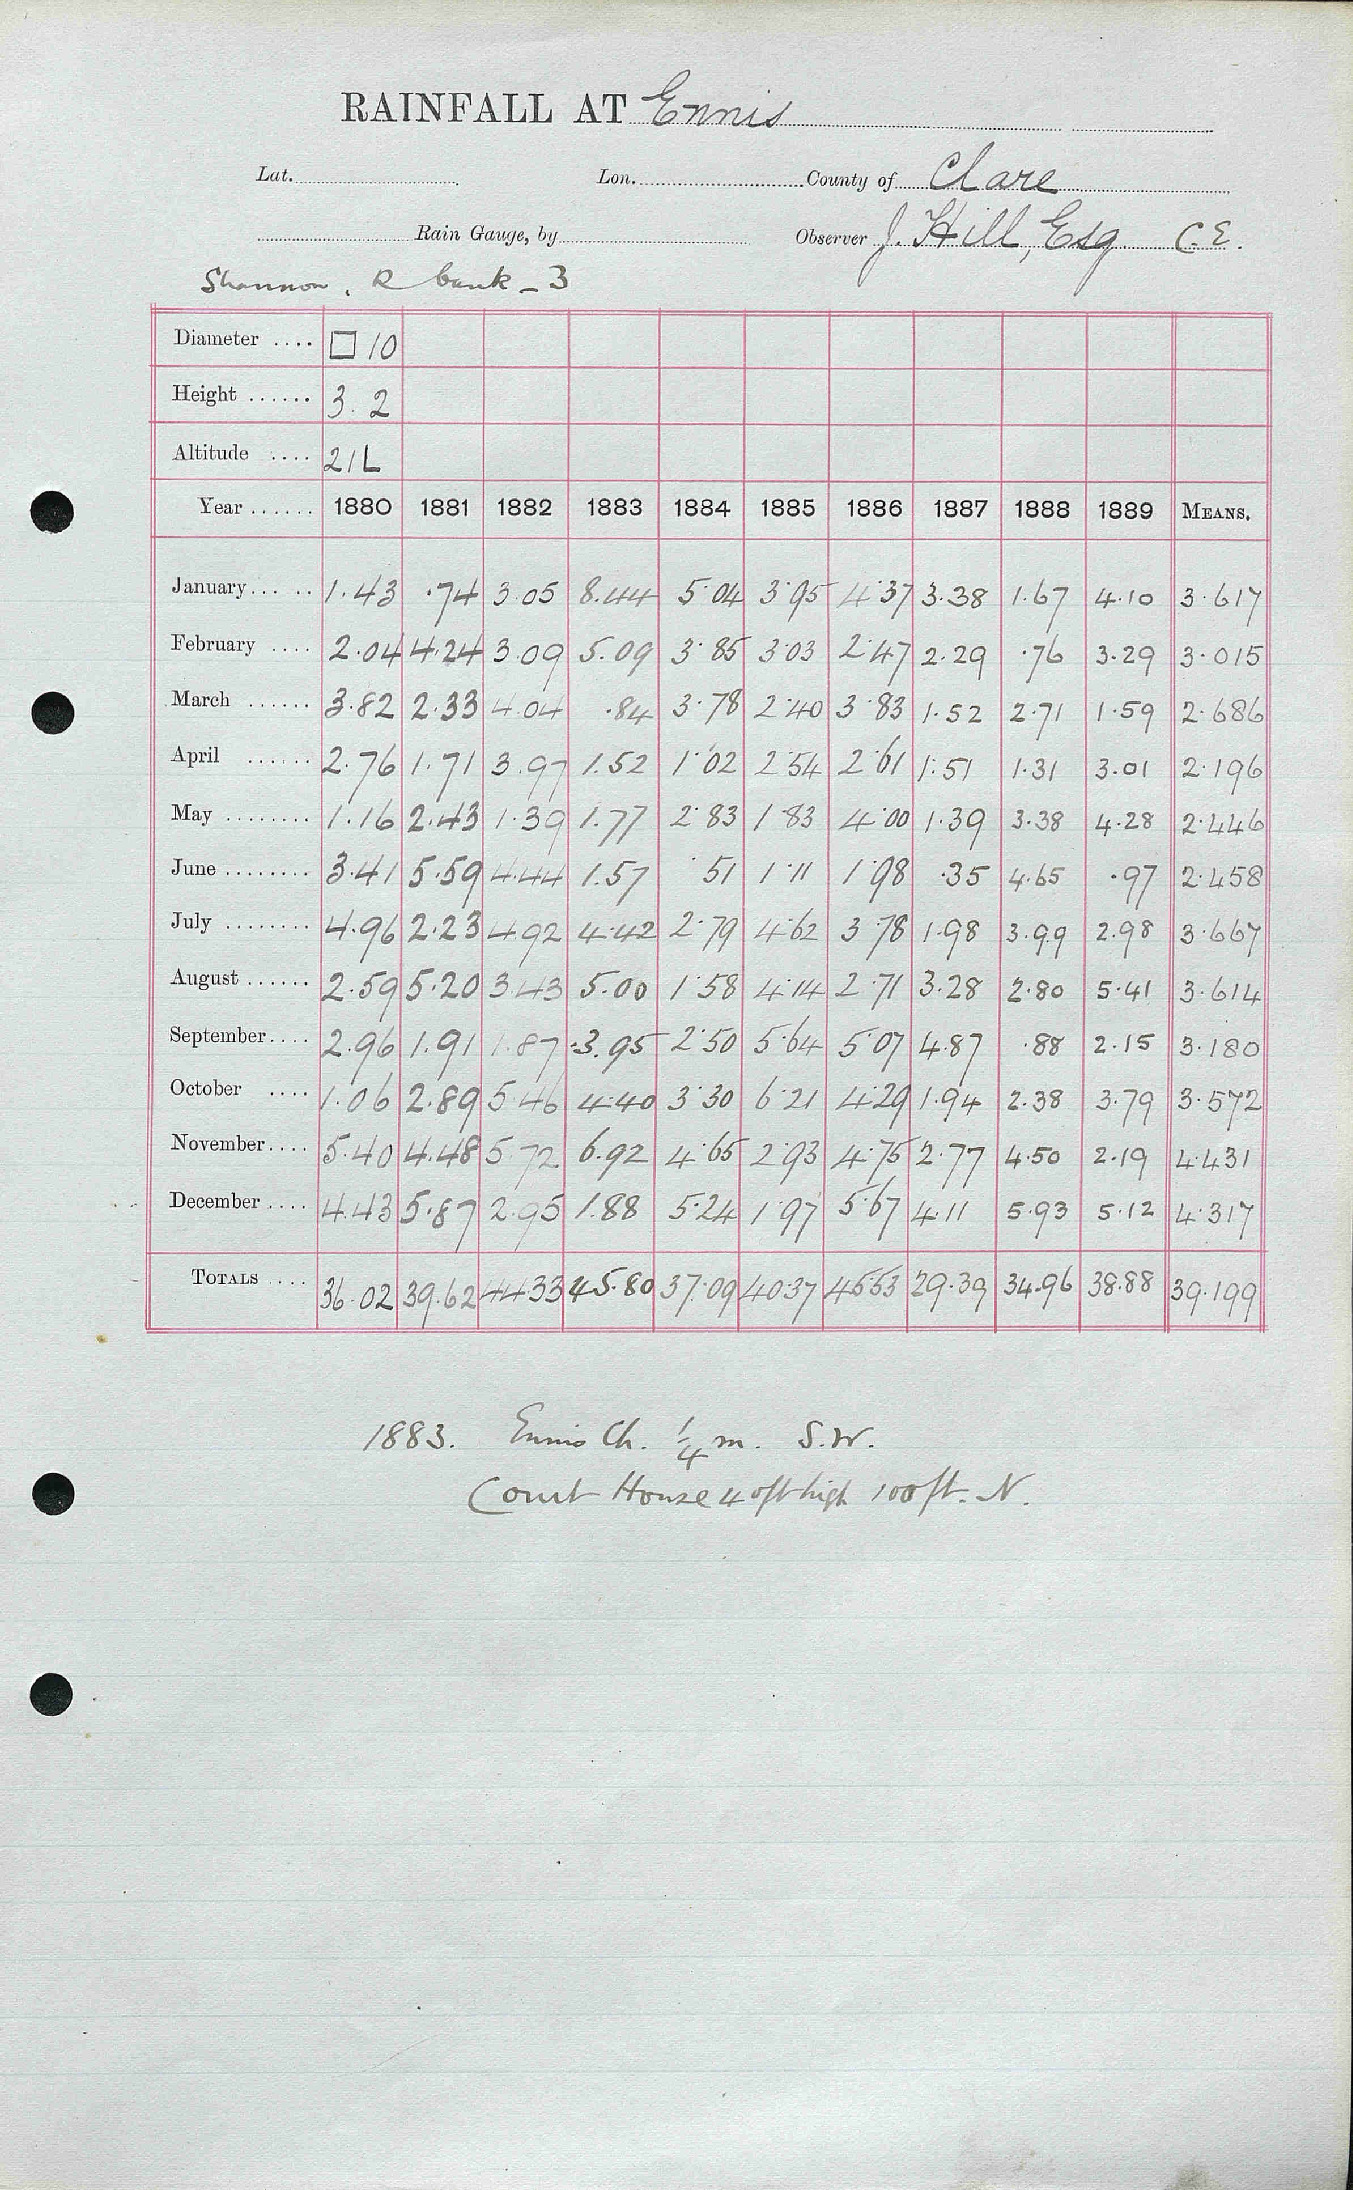 RAINFALL AT Ennis
Lat. Lon. County of Clare
Rain Gauge, by Observer J. Hill, Esq C.E.
Shannon, R bank - 3
Diameter .... □ 10
Height ...... 3. 2
Altitude .... 21L
Year ...... 1880 1881 1882 1883 1884 1885 1886 1887 1888 1889 MEANS.
January... .. 1.43 .74 3.05 8.44 5.04 3.95 4.37 3.38 1.67 4.10 3.617
February .... 2.04 4.24 3.09 5.09 3.85 3.03 2.47 2.29 .76 3.29 3.015
March ...... 3.82 2.33 4.04 .84 3.78 2.40 3.83 1.52 2.71 1.59 2.686
April ...... 2.76 1.71 3.97 1.52 1.02 2.54 2.61 1.51 1.31 3.01 2.196
May ........ 1.16 2.43 1.39 1.77 2.83 1.83 4.00 1.39 3.38 4.28 2.446
June ........ 3.41 5.59 4.44 1.57 .51 1.11 1.98 .35 4.65 .97 2.458
July ........ 4.96 2.23 4.92 4.42 2.79 4.62 3.78 1.98 3.99 2.98 3.667
August ...... 2.59 5.20 3.43 5.00 1.58 4.14 2.71 3.28 2.80 5.41 3.614
September.... 2.96 1.91 1.87 3.95 2.50 5.64 5.07 4.87 .88 2.15 3.180
October .... 1.06 2.89 5.46 4.40 3.30 6.21 4.29 1.94 2.38 3.79 3.572
November.... 5.40 4.48 5.72 6.92 4.65 2.93 4.75 2.77 4.50 2.19 4.431
December .... 4.43 5.87 2.95 1.88 5.24 1.97 5.67 4.11 5.93 5.12 4.317
TOTALS .... 36.02 39.62 44.33 45.80 37.09 40.37 45.53 29.39 34.96 38.88 39.199
1883. Ennis Ch. 1/4 m. S.W.
Court House 40ft high 100ft. N.